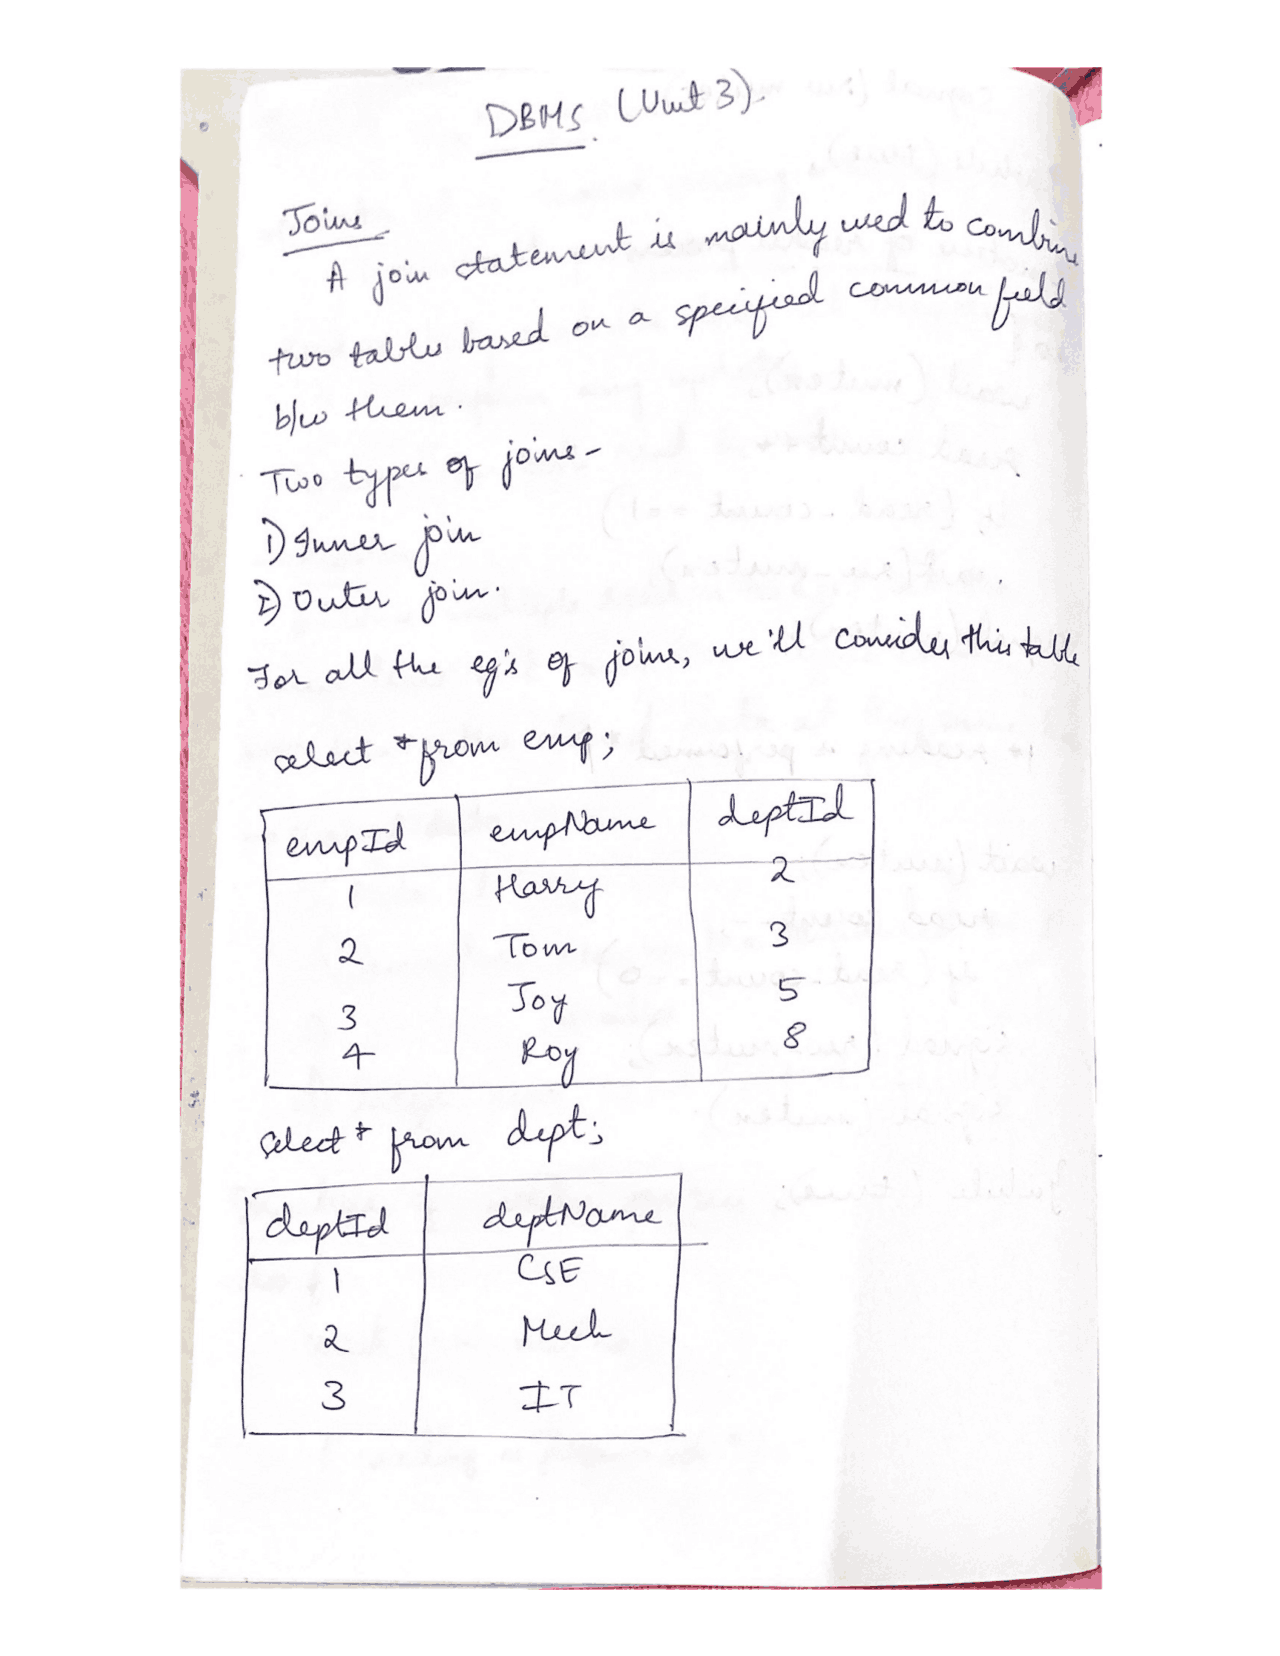 DBMS. (Unit 3).
Joins
A join statement is mainly used to combine
two tables based on a specified common field
b/w them.
Two types of joins -
1) Inner join
2) Outer join.
For all the eg's of joins, we'll consider this table
select * from emp;
empId empName deptId
1 Harry 2
2 Tom 3
3 Joy 5
4 Roy 8
select * from dept;
deptId deptName
1 CSE
2 Mech
3 IT